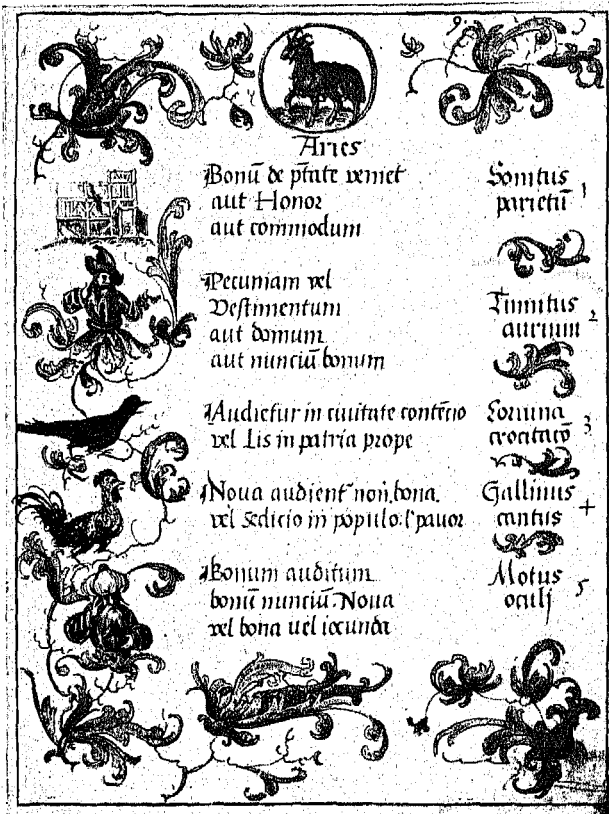 9.
Aries
Bonū de p̄tate veniet
aut Honor
aut commodum
Sonitus
parietū 1
Pecuniam vel
Vestimentum
aut domum
aut nunciū bonum
Tinnitus
aurium 2
Audietur in civitate contēcio
vel Lis in patria prope
Corvina
crocitacō 3
Nova audient non bona
vel Sedicio in populo l' pavor
Gallinus
cantus 4
Bonum auditum
bonū nunciū. Nova
vel bona uel iocunda
Motus
oculj 5